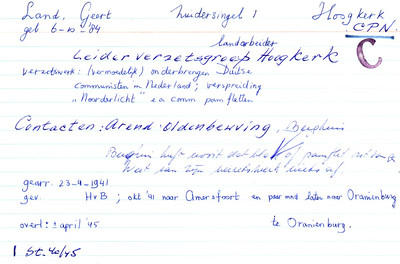 Land, Geert Zuidersingel 1 Hoogkerk
geb 6-10-'84 CPN.
landarbeider C
Leider verzetsgroep Hoogkerk
verzetswerk: (vermoedelijk) onderbrengen Duitse
communisten in Nederland; verspreiding
"Noorderlicht" en comm pamfletten
Contacten: Arend Oldenbeuving, Beughuis
Beughuis heeft nooit dat blad of pamflet
gearr. 23-4-1941
gev. HvB; okt '41 naar Amersfoort en paar mnd later naar Oranienburg
overl: ± april '45 te Oranienburg.